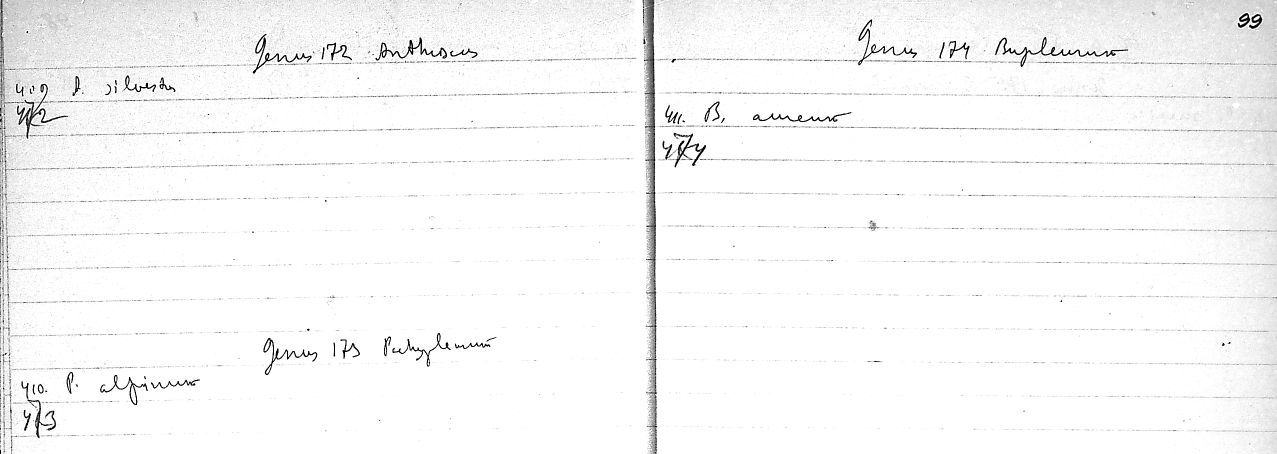 Genus 172 Anthriscus
409 A. silvestris
472
Genus 173 Pachypleurum
410. P. alpinum
473
99
Genus 174 Bupleurum
411. B. aureum
474